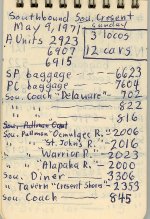 Southbound Sou. Crescent
Sunday
May 9, 1971
3 locos
A Units 2923
6907
12 cars
6915
SP baggage 6623
PC baggage 7604
Sou. Coach "Delaware" 702
" " 822
" " 816
Sou. Pullman Ocmulgee R. - 2006
" " St. Johns R. - 2016
" " Warrior R. - 2023
" " Alapaha R. - 2000
Sou. Diner - 3306
" Tavern "Crescent Shores" - 2353
Sou Coach 845